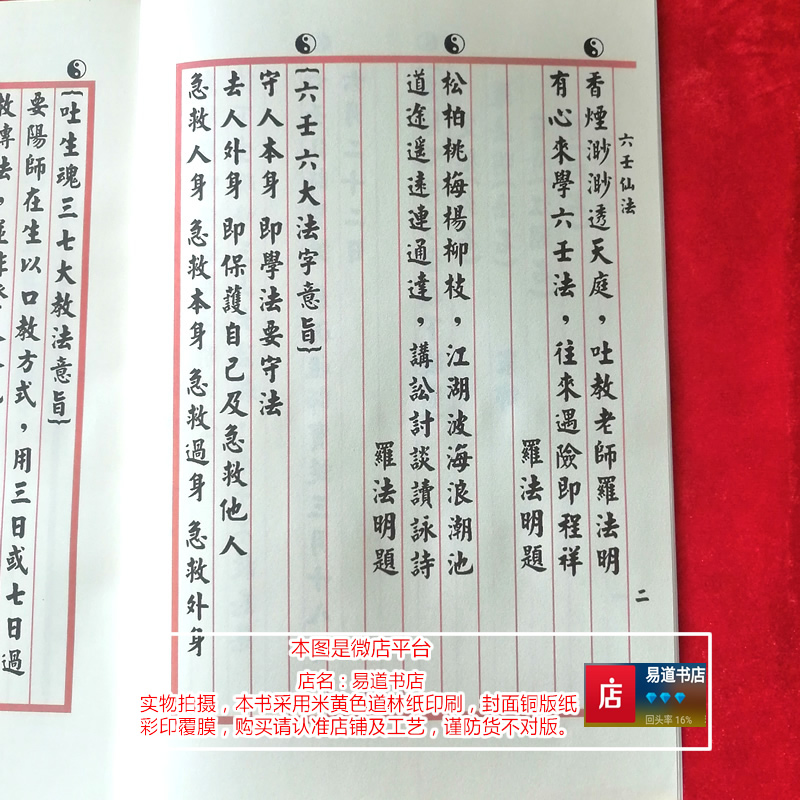 六壬仙法
二
香煙渺渺透天庭，吐教老師羅法明
有心來學六壬法，往來遇險即程祥
羅法明題
松柏桃梅楊柳枝，江湖波海浪潮池
道途遥遠連通達，講訟討談讀詠詩
羅法明題
〔六壬六大法字意旨〕
守人本身 即學法要守法
去人外身 即保護自己及急救他人
急救人身 急救本身 急救過身 急救外身
〔吐生魂三七大教法意旨〕
要陽師在生以口教方式，用三日或七日過
本图是微店平台
店名：易道书店
实物拍摄，本书采用米黄色道林纸印刷，封面铜版纸
彩印覆膜，购买请认准店铺及工艺，谨防货不对版。
店
易道书店
回头率 16%